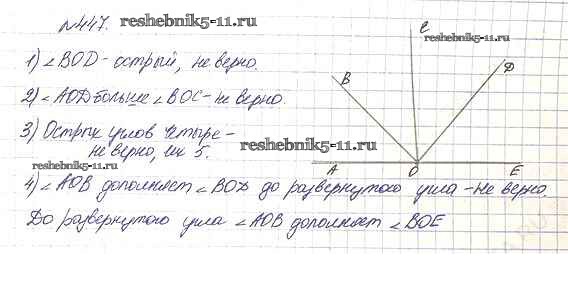 №447.
reshebnik5-11.ru
1) ∠BOD - острый, не верно.
2) ∠AOD больше ∠BOC - не верно.
3) Острых углов четыре -
не верно, их 5.
4) ∠AOB дополняет ∠BOD до развернутого угла - не верно.
До развернутого угла ∠AOB дополняет ∠BOE
C
reshebnik5-11.ru
B
D
reshebnik5-11.ru
reshebnik5-11.ru
A
O
E